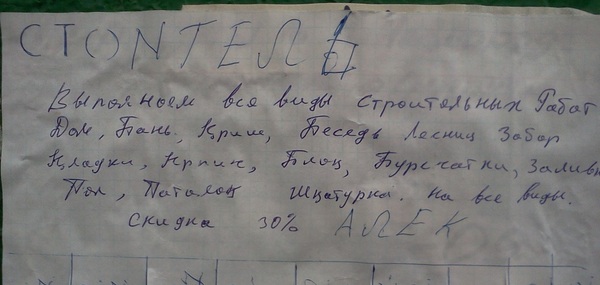 СТОИТЕЛЬ
Выпояноем все виды строительных Работ
Дом, Бань, Криш, Беседь Лесниц Забор
Кладки, Крпич, Блоц, Бурсчатки, Заливы
Пол, Паталоц Шцатурка. на все виды.
скидка 30% АЛЕК